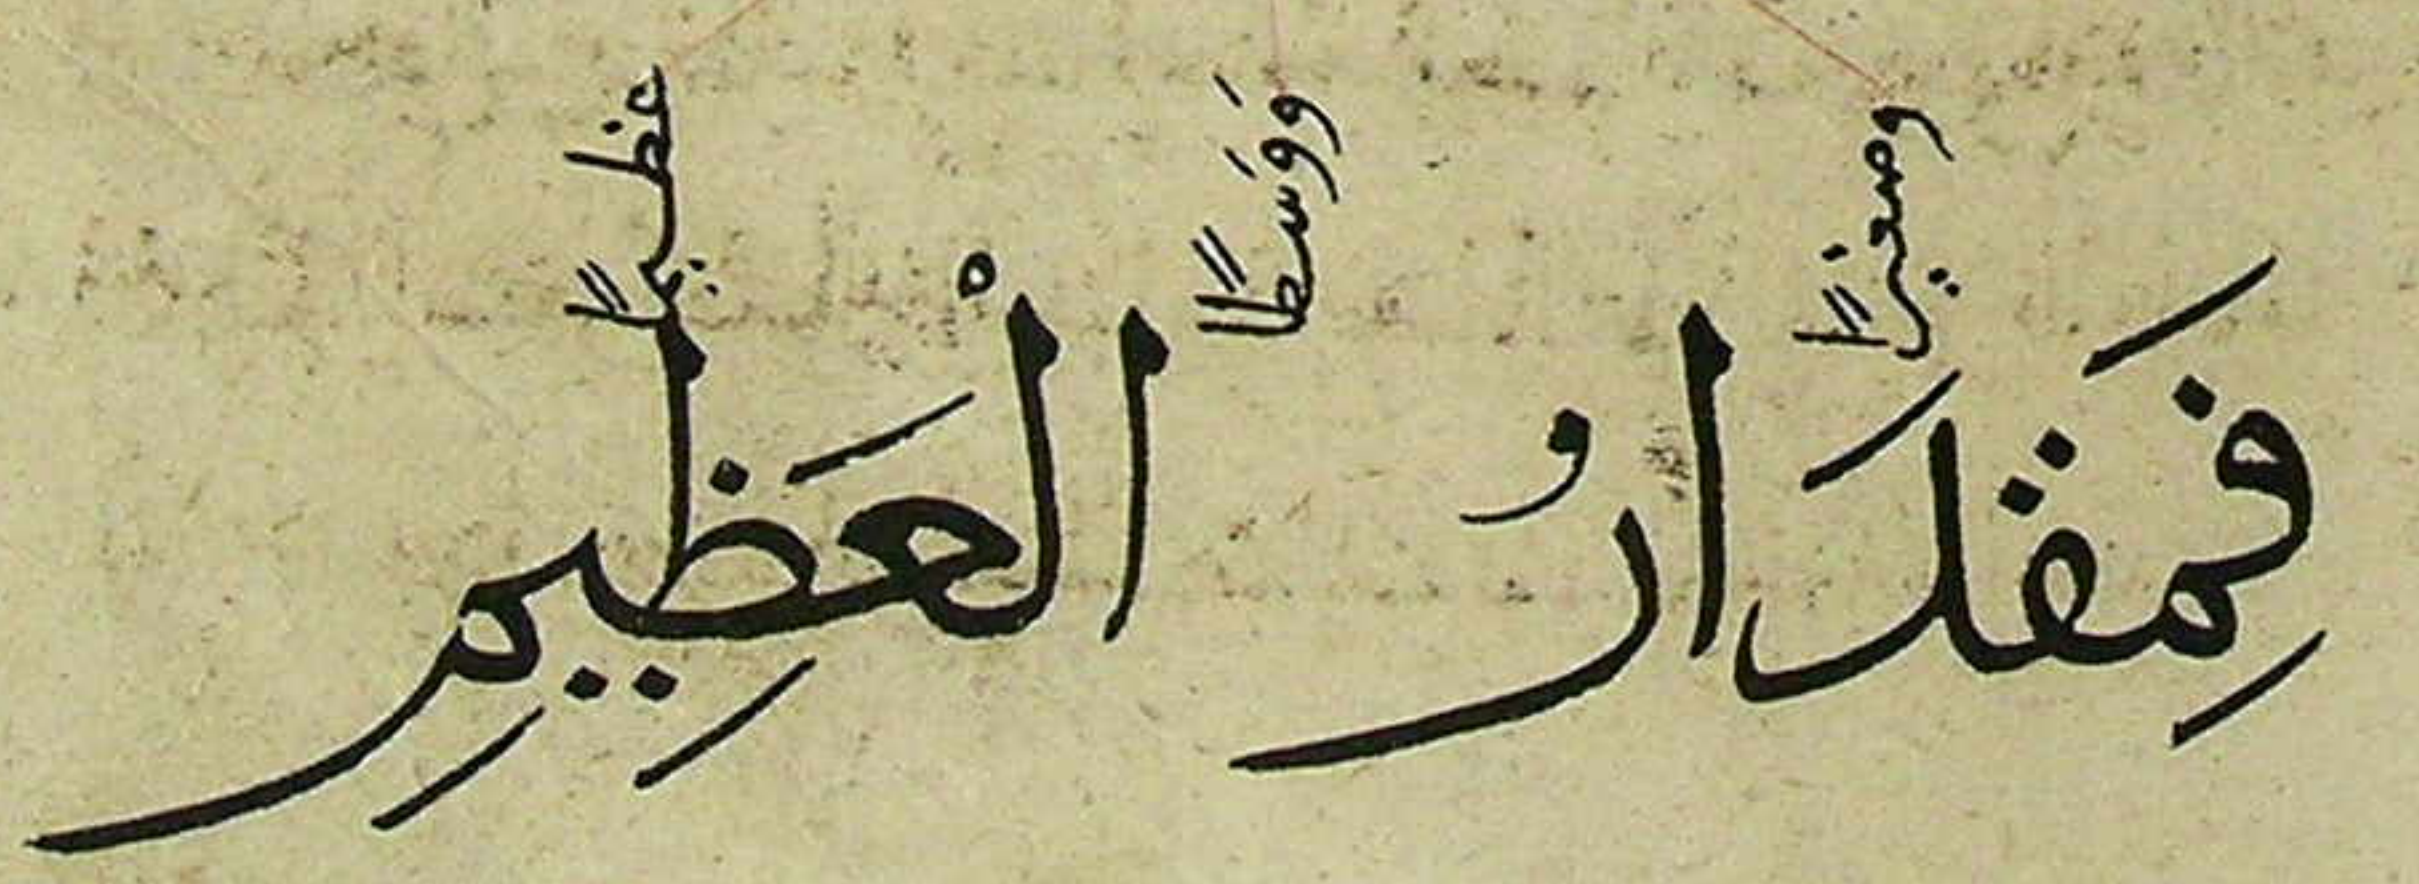 وصغيرًا
وَوَسطًا
عظيمًا
فَمِقدَارُ الْعَظِيمِ